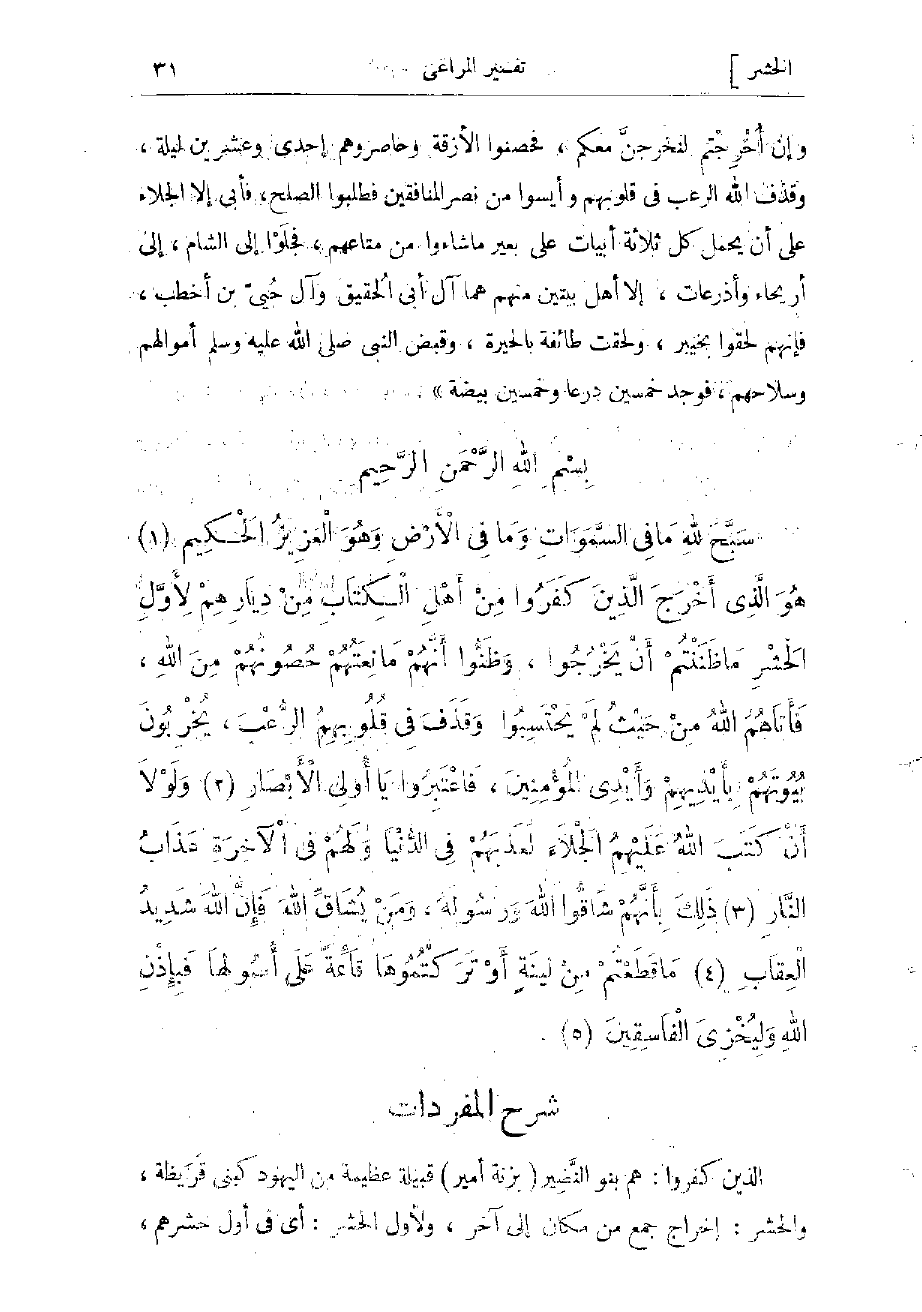 الحشر ] تفسير المراغى ٣١
وإن أُخْرِجْتم لنخرجنَّ معكم ، فحصنوا الأزقة وحاصروهم إحدى وعشرين ليلة ،
وقذف الله الرعب فى قلوبهم وأيسوا من نصر المنافقين فطلبوا الصلح ، فأبى إلا الجلاء
على أن يحمل كل ثلاثة أبيات على بعير ماشاءوا من متاعهم ، فجلَوْا إلى الشام ، إلى
أريحاء وأذرعات ، إلا أهل بيتين منهم هما آل أبى الحقيق وآل حُيىّ بن أخطب ،
فإنهم لحقوا بخيبر ، ولحقت طائفة بالحيرة ، وقبض النبى صلى الله عليه وسلم أموالهم
وسلاحهم ، فوجد خمسين درعا وخمسين بيضة »
بِسْمِ اللهِ الرَّحْمَنِ الرَّحِيمِ
سَبَّحَ لِلهِ مَافِى السَّمَوَاتِ وَمَا فِى الْأَرْضِ وَهُوَ الْعَزِيزُ الْحَكِيمُ (١)
هُوَ الَّذِى أَخْرَجَ الَّذِينَ كَفَرُوا مِنْ أَهْلِ الْكِتَابِ مِنْ دِيَارِهِمْ لِأَوَّلِ
الْحَشْرِ مَاظَنَنْتُمْ أَنْ يَخْرُجُوا ، وَظَنُّوا أَنَّهُمْ مَانِعَتُهُمْ حُصُونُهُمْ مِنَ اللهِ ،
فَأَتَاهُمُ اللهُ مِنْ حَيْثُ لَمْ يَحْتَسِبُوا وَقَذَفَ فِى قُلُوبِهِمُ الرُّعْبَ ، يُخْرِبُونَ
بُيُوتَهُمْ بِأَيْدِيهِمْ وَأَيْدِى الْمُؤْمِنِينَ ، فَاعْتَبِرُوا يَا أُولِى الْأَبْصَارِ (٢) وَلَوْلاَ
أَنْ كَتَبَ اللهُ عَلَيْهِمُ الْجَلَاءَ لَعَذَّبَهُمْ فِى الدُّنْيَا وَلَهُمْ فِى الْآخِرَةِ عَذَابُ
النَّارِ (٣) ذَلِكَ بِأَنَّهُمْ شَاقُّوا اللهَ وَرَسُولَهُ ، وَمَنْ يُشَاقِّ اللهَ فَإِنَّ اللهَ شَدِيدُ
الْعِقَابِ (٤) مَاقَطَعْتُمْ مِنْ لِينَةٍ أَوْ تَرَكْتُمُوهَا قَائِمَةً عَلَى أُصُولِهَا فَبِإِذْنِ
اللهِ وَلِيُخْزِىَ الْفَاسِقِينَ (٥) .
شرح المفردات
الذين كفروا : هم بنو النَّضِير ( بزنة أمير ) قبيلة عظيمة من اليهود كبنى قُرَيظة ،
والحشر : إخراج جمع من مكان إلى آخر ، ولأول الحشر : أى فى أول حشرهم ،